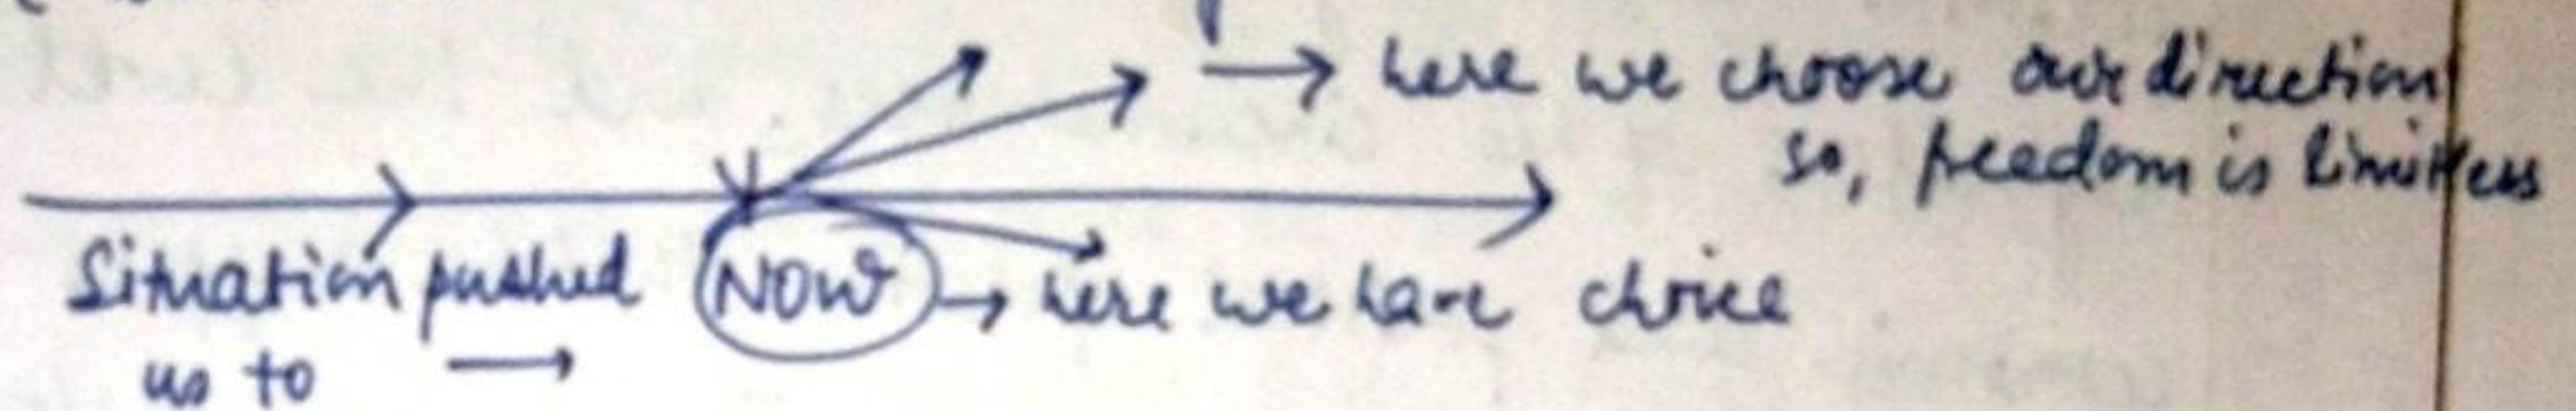 → here we choose our direction
so, freedom is limitless
Situation pushed
us to →
NOW → here we have choice